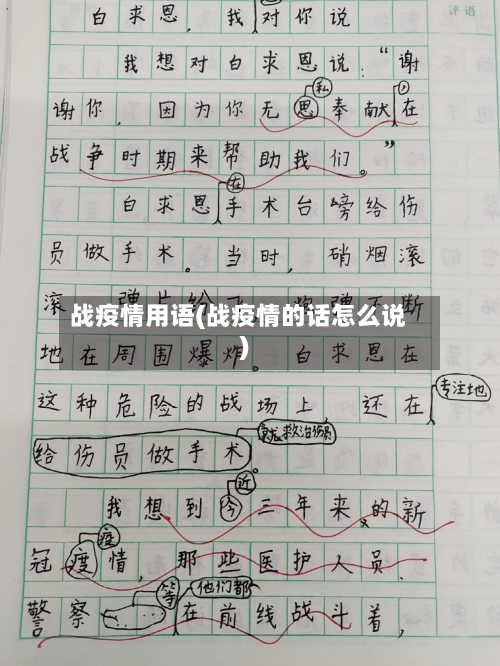 评语
白求恩，我对你说
我想对白求恩说："谢
私
谢你，因为你无恩奉献在
战争时期来帮助我们。"
在
白求恩手术台嗙给伤
员做手术。当时，硝烟滚
滚，弹片纷飞，炮弹不断
战疫情用语(战疫情的话怎么说
)
地在周围爆炸。白求恩在
专注地
这种危险的战场上，还在
就救治伤员
给伤员做手术。
近
我想到今三年来，的新
疫
冠疫情，那些医护人员、
等 他们都
警察在前线战斗着，